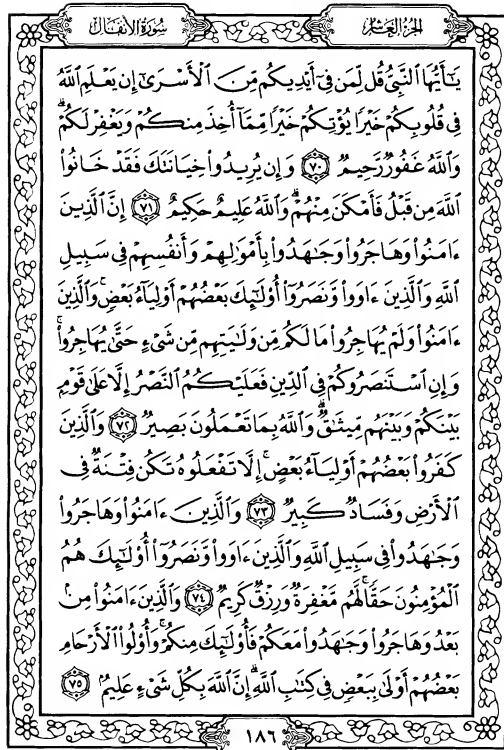 الجزء العاشر
سورة الأنفال
يَٰٓأَيُّهَا ٱلنَّبِىُّ قُل لِّمَن فِىٓ أَيْدِيكُم مِّنَ ٱلْأَسْرَىٰٓ إِن يَعْلَمِ ٱللَّهُ
فِى قُلُوبِكُمْ خَيْرًا يُؤْتِكُمْ خَيْرًا مِّمَّآ أُخِذَ مِنكُمْ وَيَغْفِرْ لَكُمْ ۗ
وَٱللَّهُ غَفُورٌ رَّحِيمٌ ﴿٧٠﴾ وَإِن يُرِيدُوا۟ خِيَانَتَكَ فَقَدْ خَانُوا۟
ٱللَّهَ مِن قَبْلُ فَأَمْكَنَ مِنْهُمْ ۗ وَٱللَّهُ عَلِيمٌ حَكِيمٌ ﴿٧١﴾ إِنَّ ٱلَّذِينَ
ءَامَنُوا۟ وَهَاجَرُوا۟ وَجَٰهَدُوا۟ بِأَمْوَٰلِهِمْ وَأَنفُسِهِمْ فِى سَبِيلِ
ٱللَّهِ وَٱلَّذِينَ ءَاوَوا۟ وَّنَصَرُوٓا۟ أُو۟لَٰٓئِكَ بَعْضُهُمْ أَوْلِيَآءُ بَعْضٍ ۚ وَٱلَّذِينَ
ءَامَنُوا۟ وَلَمْ يُهَاجِرُوا۟ مَا لَكُم مِّن وَلَٰيَتِهِم مِّن شَىْءٍ حَتَّىٰ يُهَاجِرُوا۟ ۚ
وَإِنِ ٱسْتَنصَرُوكُمْ فِى ٱلدِّينِ فَعَلَيْكُمُ ٱلنَّصْرُ إِلَّا عَلَىٰ قَوْمٍۭ
بَيْنَكُمْ وَبَيْنَهُم مِّيثَٰقٌ ۗ وَٱللَّهُ بِمَا تَعْمَلُونَ بَصِيرٌ ﴿٧٢﴾ وَٱلَّذِينَ
كَفَرُوا۟ بَعْضُهُمْ أَوْلِيَآءُ بَعْضٍ ۚ إِلَّا تَفْعَلُوهُ تَكُن فِتْنَةٌ فِى
ٱلْأَرْضِ وَفَسَادٌ كَبِيرٌ ﴿٧٣﴾ وَٱلَّذِينَ ءَامَنُوا۟ وَهَاجَرُوا۟
وَجَٰهَدُوا۟ فِى سَبِيلِ ٱللَّهِ وَٱلَّذِينَ ءَاوَوا۟ وَّنَصَرُوٓا۟ أُو۟لَٰٓئِكَ هُمُ
ٱلْمُؤْمِنُونَ حَقًّا ۚ لَّهُم مَّغْفِرَةٌ وَرِزْقٌ كَرِيمٌ ﴿٧٤﴾ وَٱلَّذِينَ ءَامَنُوا۟ مِنۢ
بَعْدُ وَهَاجَرُوا۟ وَجَٰهَدُوا۟ مَعَكُمْ فَأُو۟لَٰٓئِكَ مِنكُمْ ۚ وَأُو۟لُوا۟ ٱلْأَرْحَامِ
بَعْضُهُمْ أَوْلَىٰ بِبَعْضٍ فِى كِتَٰبِ ٱللَّهِ ۗ إِنَّ ٱللَّهَ بِكُلِّ شَىْءٍ عَلِيمٌۢ ﴿٧٥﴾
١٨٦